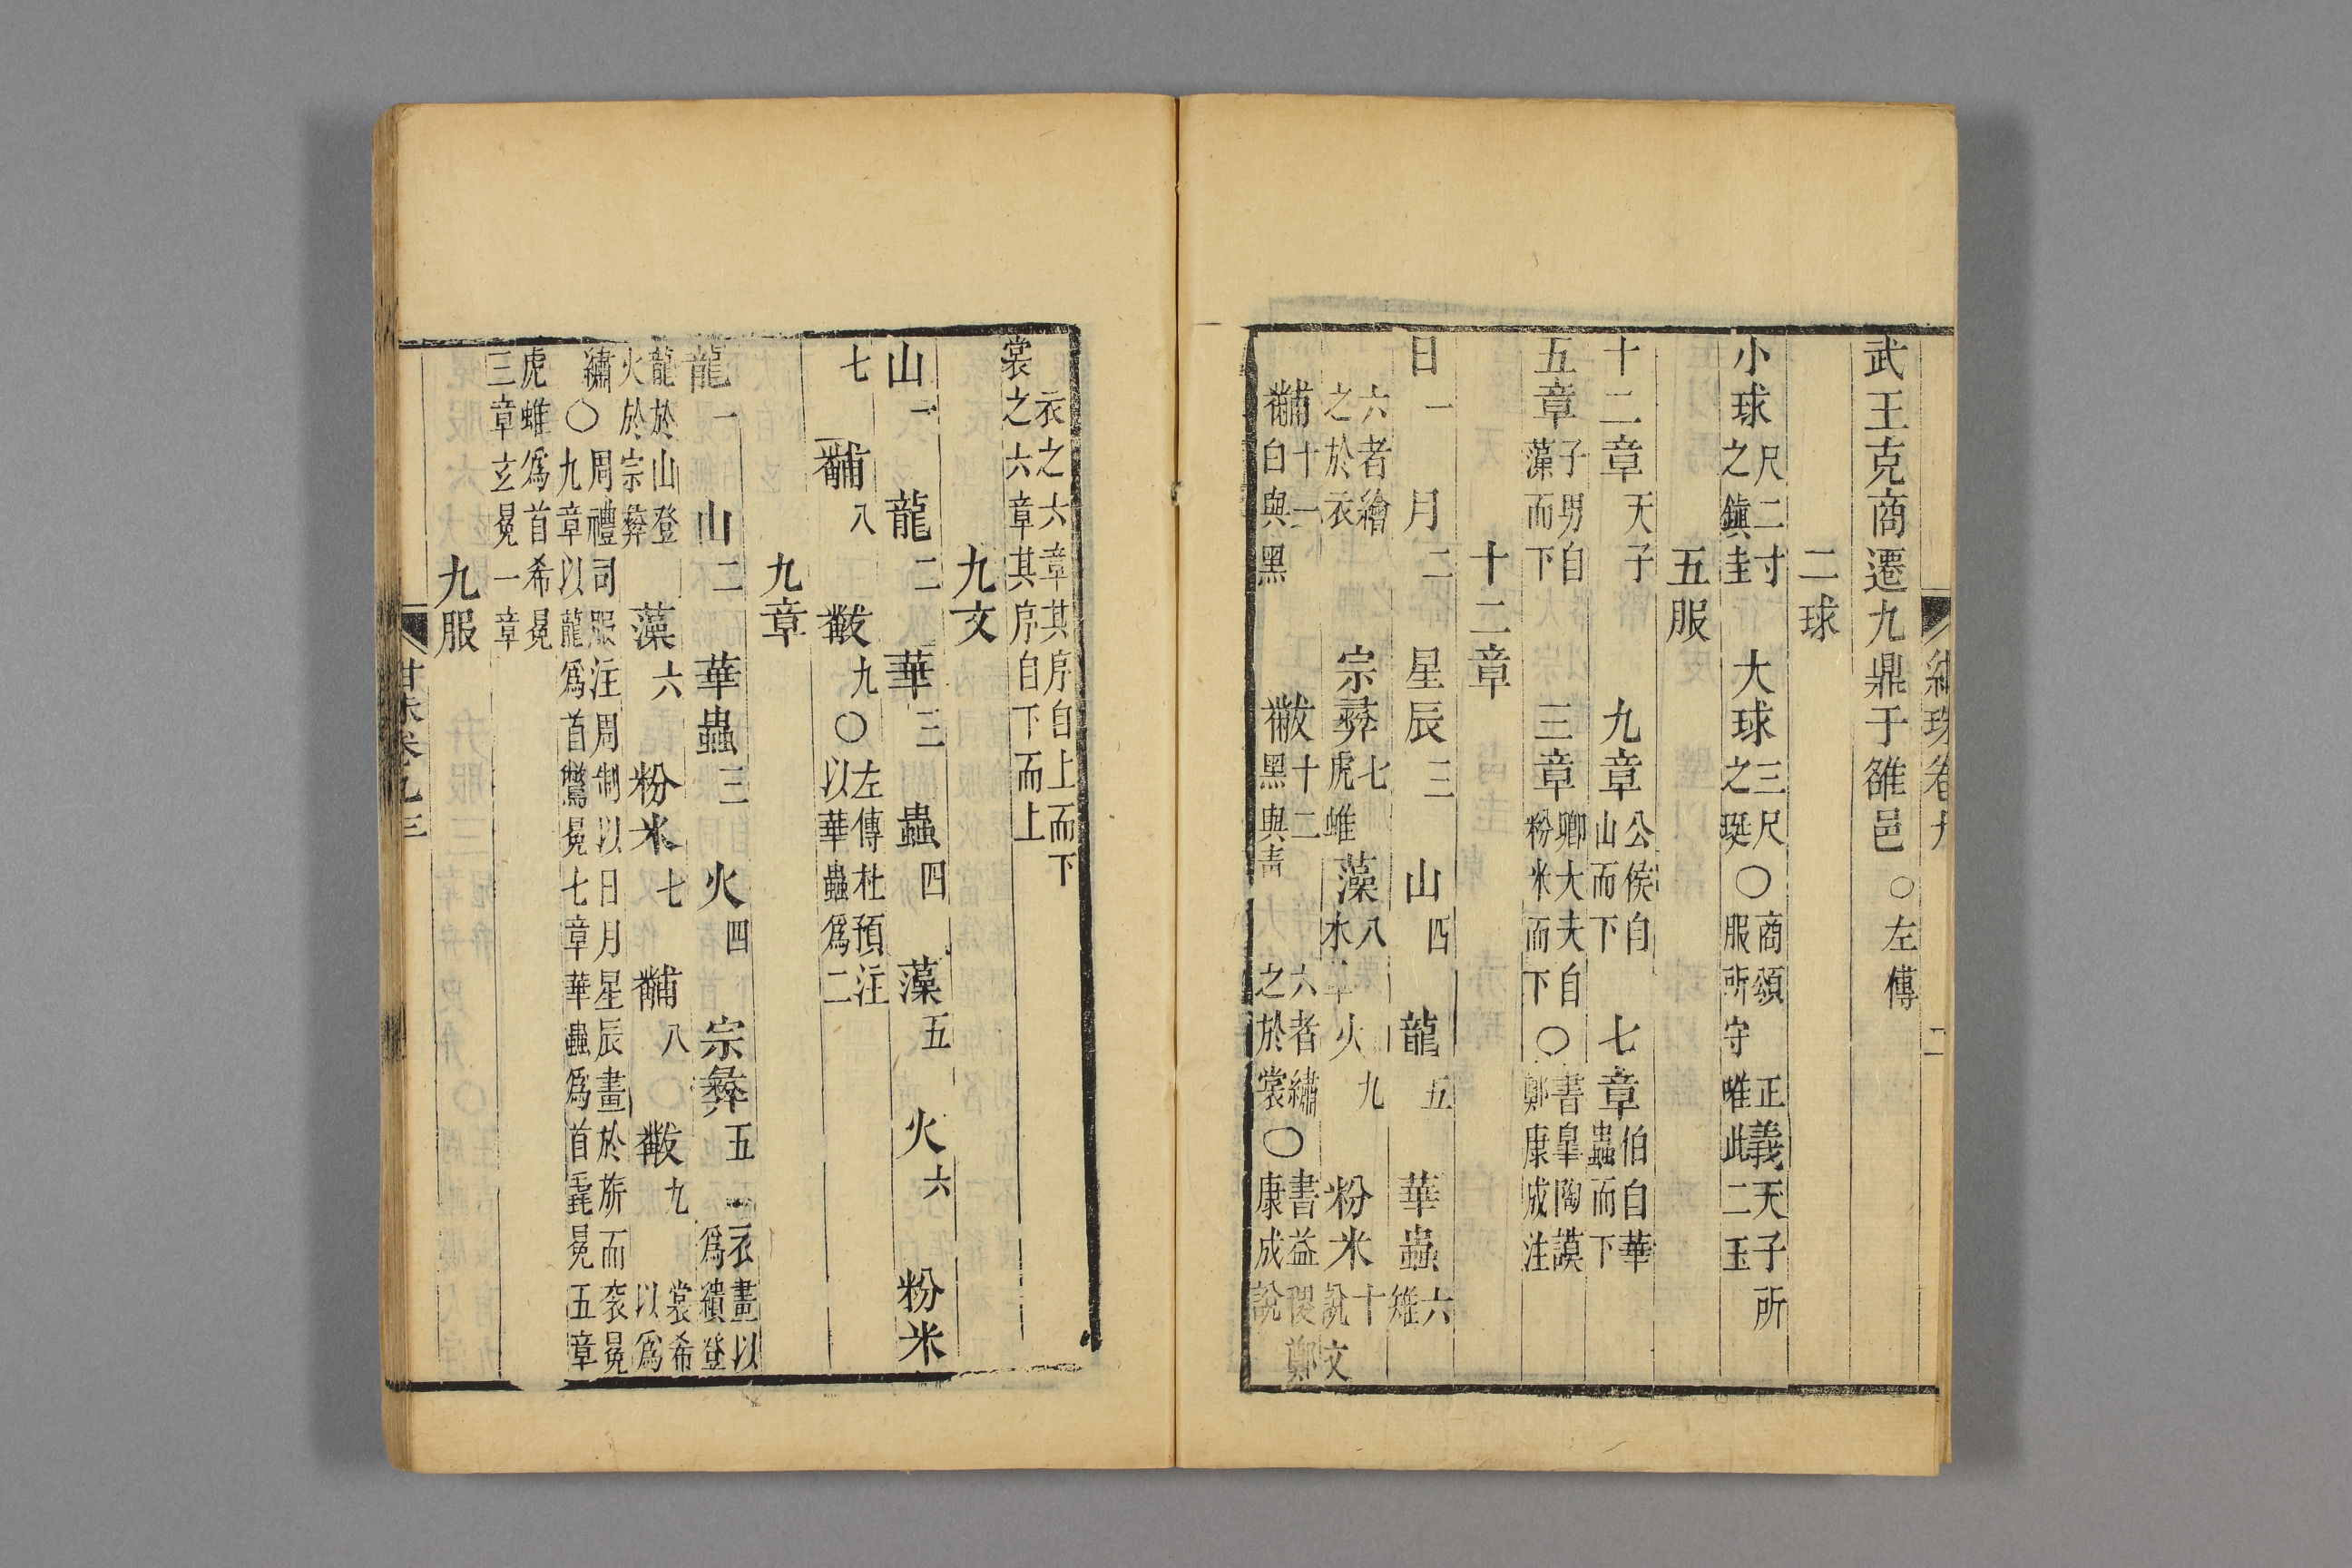 武王克商遷九鼎于雒邑○左傳
二球
小球尺二寸之鎮圭 大球三尺之珽○商頌 正義天子所服所守唯此二玉
五服
十二章天子 九章公侯自山而下 七章伯自華蟲而下
五章子男自藻而下 三章卿大夫自粉米而下○書皐陶謨鄭康成注
十二章
日一 月二 星辰三 山四 龍五 華蟲六雉
六者繪之於衣 宗彛七虎蜼 藻八水草 火九 粉米十說文
黼十一白與黑 黻十二黑與青 六者繡之於裳○書益稷鄭康成說
衣之六章其序自上而下
裳之六章其序自下而上
九文
山一 龍二 華三 蟲四 藻五 火六 粉米
七 黼八 黻九○左傳杜預注以華蟲爲二
九章
龍一 山二 華蟲三 火四 宗彛五 衣畫以爲繢登
龍於山登火於宗彛 藻六 粉米七 黼八 黻九 裳希以爲
繡○周禮司服注周制以日月星辰畫於旂而衮冕九章以龍爲首鷩冕七章華蟲爲首毳冕五章
虎蜼爲首希冕三章玄冕一章
九服